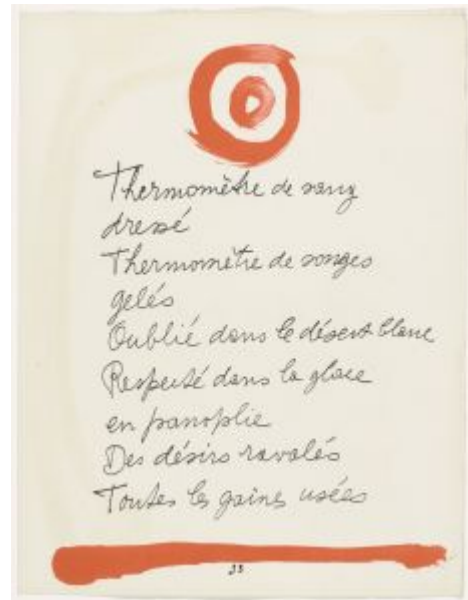 Thermomètre de sang
dressé
Thermomètre de songes
gelés
Oublié dans le désert blanc
Respecté dans la glace
en panoplie
Des désirs ravalés
Toutes les gaines usées
33